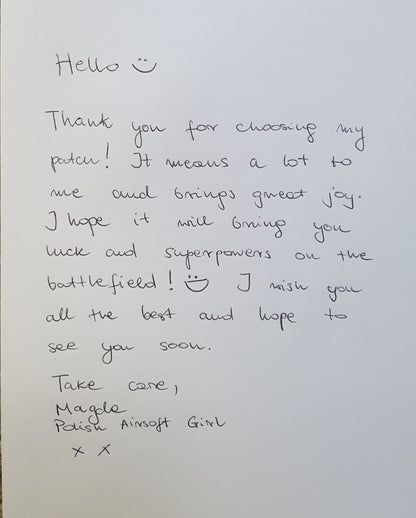 Hello :)
Thank you for choosing my
patch! It means a lot to
me and brings great joy.
I hope it will bring you
luck and superpowers on the
battlefield! :) I wish you
all the best and hope to
see you soon.
Take care,
Magda
Polish Airsoft Girl
x x